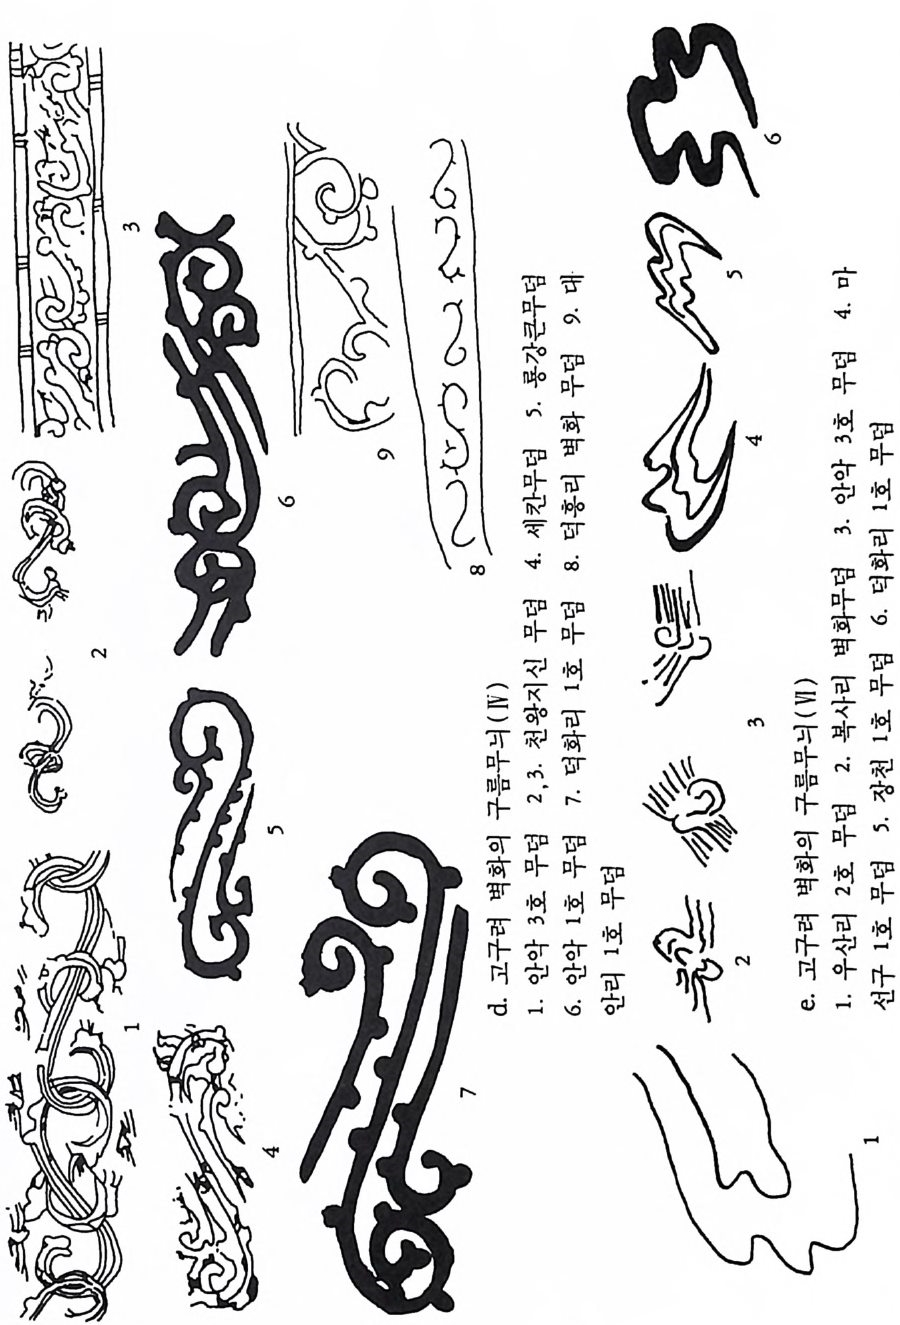 1
2
3
4
5
6
7
8
9
d. 고구려 벽화의 구름무늬(Ⅳ)
1. 안악 3호 무덤 2,3. 천왕지신 무덤 4. 세칸무덤 5. 룡강큰무덤
6. 안악 1호 무덤 7. 덕화리 1호 무덤 8. 덕흥리 벽화 무덤 9. 대
안리 1호 무덤
1
2
3
4
5
6
e. 고구려 벽화의 구름무늬(Ⅵ)
1. 우산리 2호 무덤 2. 복사리 벽화무덤 3. 안악 3호 무덤 4. 마
선구 1호 무덤 5. 장천 1호 무덤 6. 덕화리 1호 무덤